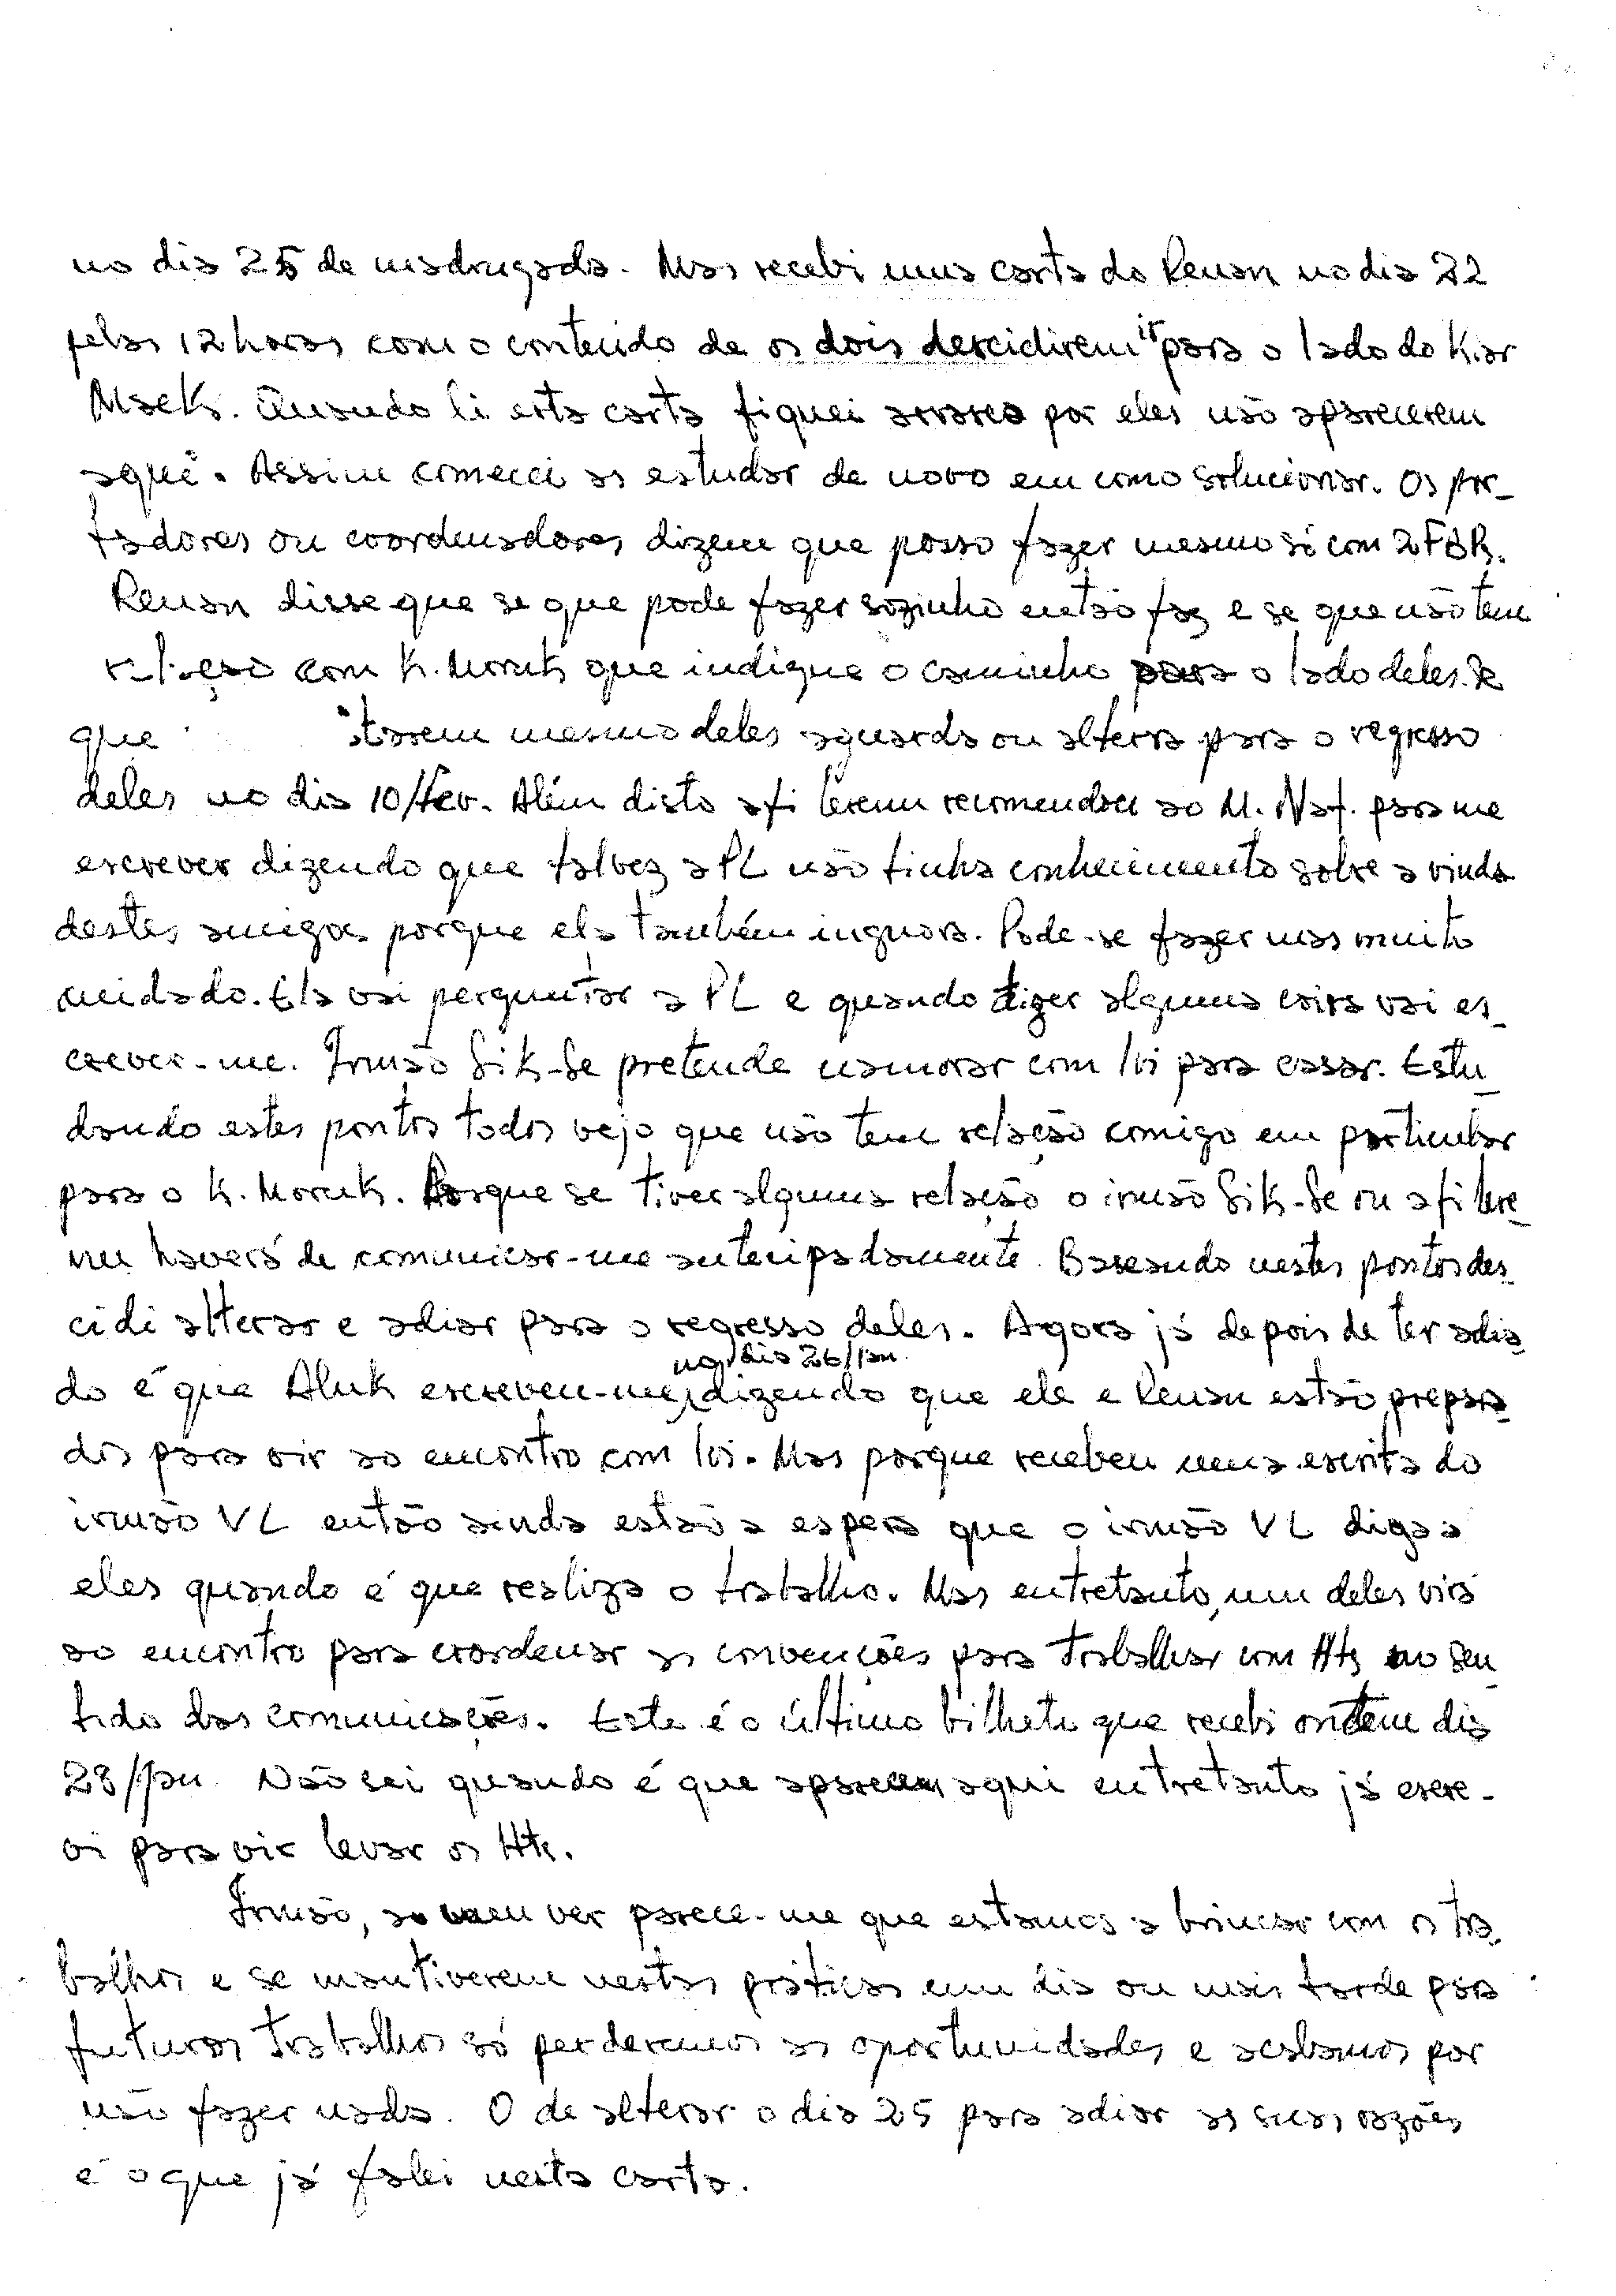 no dia 25 de madrugada. Mas recebi uma carta do Renan no dia 22
pelas 12 horas com o conteúdo de os dois descidirem ir para o lado do K.ar
Maek. Quando li esta carta fiquei por eles não aparecerem
aqui. Assim comecei as estudar de novo em como solucionar. Os por-
tadores ou coordenadores dizem que posso fazer mesmo só com 2 FBR.
Renan disse que se que pode fazer sozinho então faz e se que não tem
relação com K. Moruk que indique o caminho para o lado deles. Se
que tarem mesmo deles aguarda ou alterra para o regresso
deles no dia 10/fev. Além disto afi Lerenu recomendou ao M. Naf. para me
escrever dizendo que talvez a PL não tinha conhecimento sobre a vinda
destes amigos porque ela também inguora. Pode-se fazer mas muito
cuidado. Ela vai perguntar a PL e quando dizer alguma coisa vai es-
crever-me. Irmão Sik-Se pretende namorar com loi para casar. Estu-
dando estes pontos todos vejo que não tem relação comigo em particular
para o K. Moruk. Porque se tiver alguma relação o irmão Sik-Se ou afi Lere-
nu haverá de comunicar-me antecipadamente. Baseando nestes pontos des-
cidi alterar e adiar para o regresso deles. Agora já depois de ter adia-
do é que Aluk escreveu-me no dia 26/jan. dizendo que ele e Renan estão prepara-
dos para vir ao encontro com loi. Mas porque recebeu uma escrita do
irmão VL então ainda estão a espera que o irmão VL diga a
eles quando é que realiza o trabalho. Mas entretanto, um deles virá
ao encontro para coordenar as convenções para trabalhar com Htks no sen-
tido das comunicações. Este é o último bilhete que recebi ontem dia
28/jan. Não sei quando é que aparecem aqui entretanto já escre-
vi para vir levar os Htk.
Irmão, ao bem ver parece-me que estamos a brincar com os tra-
balhos e se mantiverem nestas práticas um dia ou mais tarde para
futuros trabalhos só perderemos as oportunidades e acabamos por
não fazer nada. O de alterar o dia 25 para adiar as suas razões
é o que já falei nesta carta.